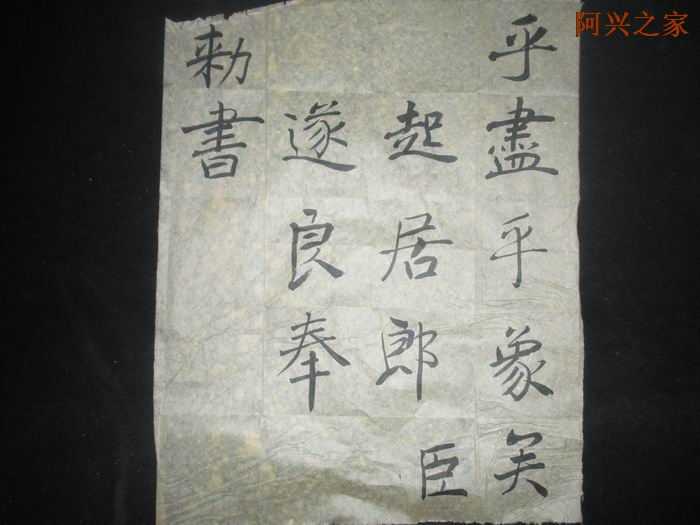 阿兴之家
乎盡乎象矣
起居郎臣
遂良奉
勑書